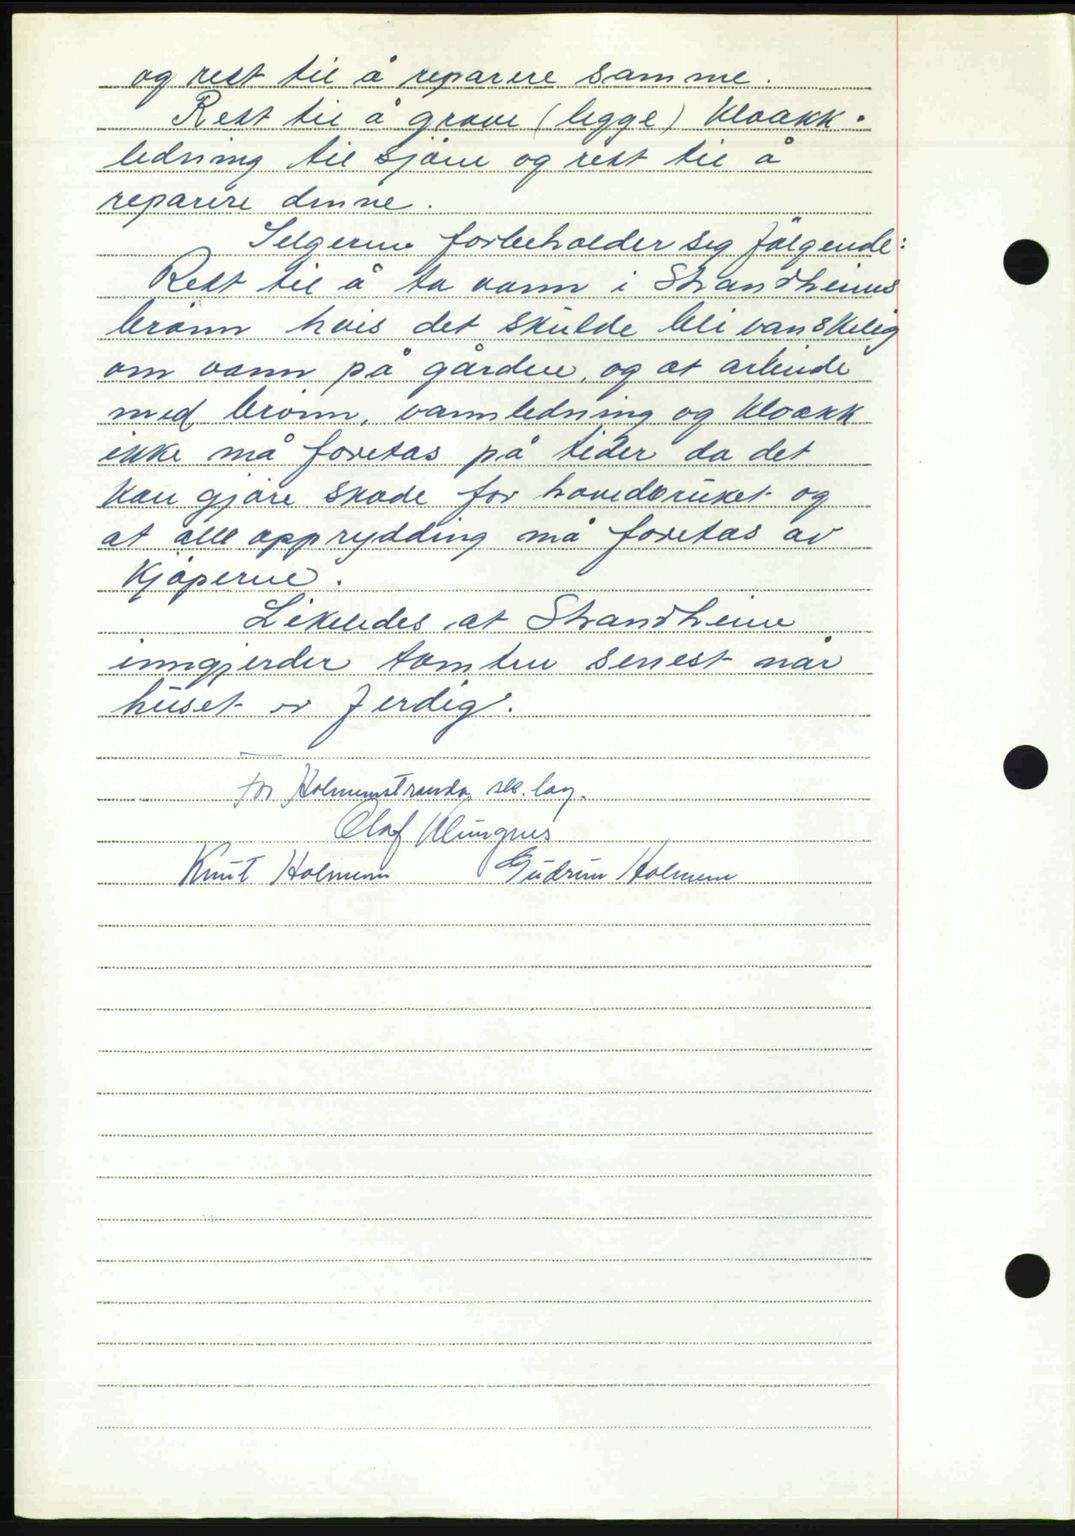 og rett til å reparere samme.
Rett til å grave (legge) kloakk-
ledning til sjøen og rett til å
reparere denne.
Selgerne forbeholder sig følgende:
Rett til å ta vann i Strandheims
brønn hvis det skulde bli vanskelig
om vann på gården, og at arbeide
med brønn, vannledning og kloakk
ikke må foretas på tider da det
kan gjøre skade for hovedbruket og
at all opprydding må foretas av
kjøperne.
Likeledes at Strandheim
inngjerder tomten senest når
huset er ferdig.
For Holmenstranda
Olaf Klungnes
Knut Holmem Gudrun Holmem